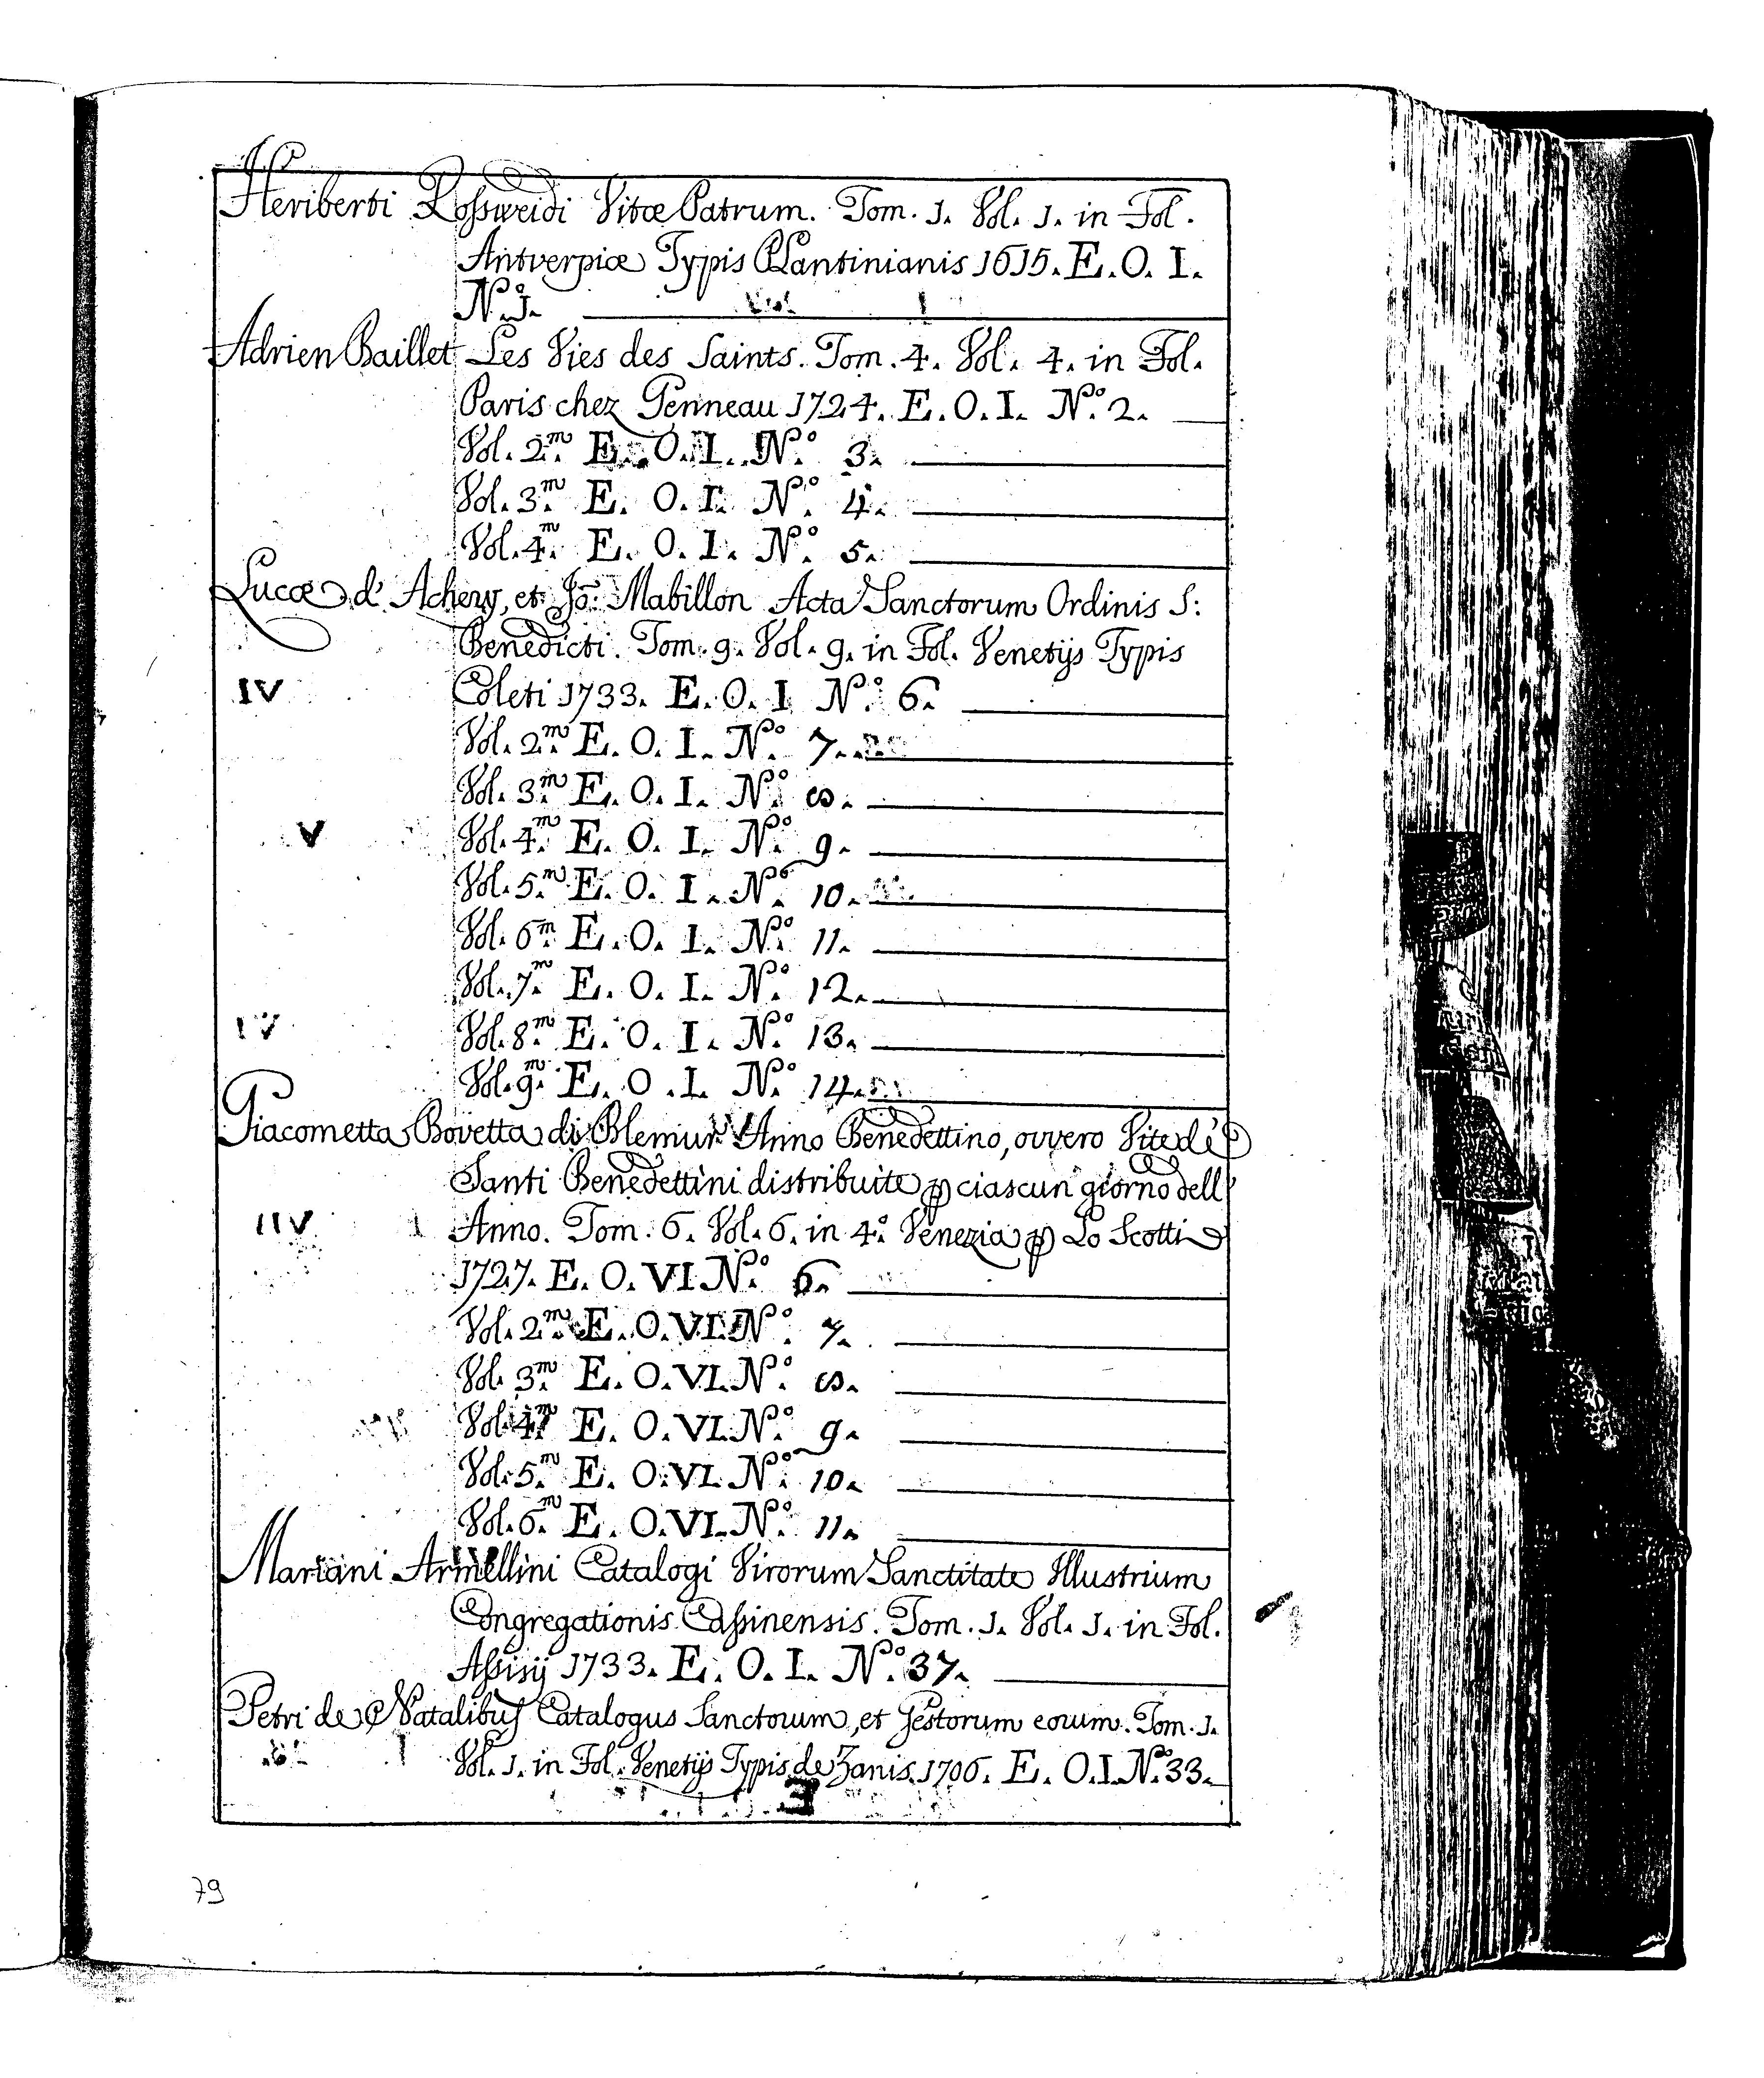 Heriberti Rossweidi Vitæ Patrum. Tom. 1. Vol. 1. in Fol.
Antverpiæ Typis Plantinianis 1615. E. O. I.
N.º 1.
Adrien Baillet Les Vies des Saints. Tom. 4. Vol. 4. in Fol.
Paris chez Genneau 1724. E. O. I. N.º 2.
Vol. 2.m E. O. I. N.º 3.
Vol. 3.m E. O. I. N.º 4.
Vol. 4.m E. O. I. N.º 5.
Lucæ d' Achery, et Jo: Mabillon Acta Sanctorum Ordinis S:
Benedicti. Tom. 9. Vol. 9. in Fol. Venetijs Typis
IV Coleti 1733. E. O. I N.º 6.
Vol. 2.m E. O. I. N.º 7.
Vol. 3.m E. O. I. N.º 8.
V Vol. 4.m E. O. I. N.º 9.
Vol. 5.m E. O. I. N.º 10.
Vol. 6.m E. O. I. N.º 11.
Vol. 7.m E. O. I. N.º 12.
IV Vol. 8.m E. O. I. N.º 13.
Vol. 9.m E. O. I. N.º 14.
Giacometta Bovetta di Blemur Anno Benedettino, ovvero Vite dè
Santi Benedettini distribuite ꝑ ciascun giorno dell'
IIV Anno. Tom. 6. Vol. 6. in 4.º Venezia ꝑ Lo Scotti
1727. E. O. VI N.º 6.
Vol. 2.m E. O. VI. N.º 7.
Vol. 3.m E. O. VI. N.º 8.
Vol. 4.m E. O. VI. N.º 9.
Vol. 5.m E. O. VI. N.º 10.
Vol. 6.m E. O. VI. N.º 11.
Mariani Armellini Catalogi Virorum Sanctitate Illustrium
Congregationis Cassinensis. Tom. 1. Vol. 1. in Fol.
Assisij 1733. E. O. I. N.º 37.
Petri de Natalibus Catalogus Sanctorum, et Gestorum eorum. Tom. 1.
Vol. 1. in Fol. Venetijs Typis de Zanis 1706. E. O. I. N.º 33.
79